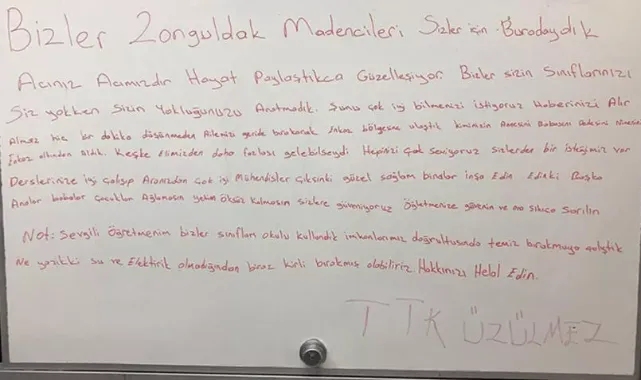 Bizler Zonguldak Madencileri Sizler için Buradaydık
Acınız Acımızdır Hayat Paylaştıkca Güzelleşiyor. Bizler sizin Sınıflarınızı
Siz yokken Sizin Yokluğunuzu Aratmadık. Şunu çok iyi bilmenizi istiyoruz Haberinizi Alır
Almaz hiç bir dakka düşünmeden Ailemizi geride bırakarak Enkaz bölgesine ulaştık kiminizin Annesini Babasını Dedesini Ninesini
Enkaz altından aldık. Keşke Elimizden daha fazlası gelebilseydi Hepinizi Çok Seviyoruz sizlerden bir isteğimiz var
Derslerinize iyi çalışıp Aranızdan Çok iyi Mühendisler Çıksınki güzel sağlam binalar inşa Edin. Edinki Başka
Analar babalar çocuklar Ağlamasın yetim Öksüz kalmasın sizlere güveniyoruz Öğretmenize güvenin ve ona sıkıca Sarılın
Not: Sevgili Öğretmenim bizler sınıfları okulu kullandık imkanlarımız doğrultusunda temiz bırakmaya çalıştık
Ne yazıkki su ve Elektirik olmadığından biraz kirli bırakmış olabiliriz. Hakkınızı Helal Edin.
TTK ÜZÜLMEZ